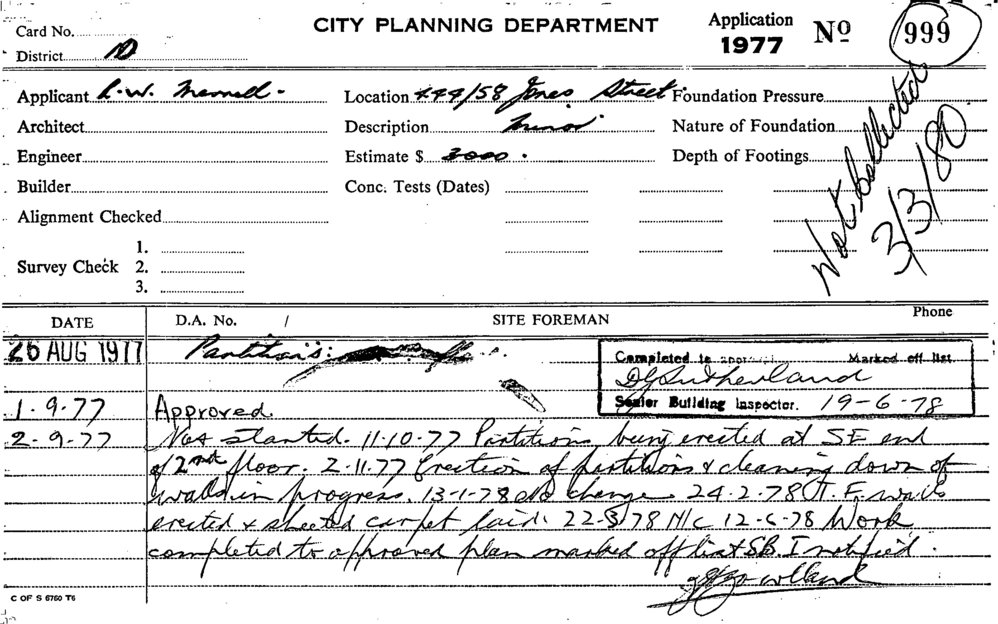 CITY PLANNING DEPARTMENT
Card No.
District D
Application 1977 No 999
Applicant R. W. Location 444/58 Jones Street Foundation Pressure
Architect Description Minor Nature of Foundation
Engineer Estimate $ 3000. Depth of Footings
Builder Conc. Tests (Dates)
Alignment Checked
Survey Check 1.
2.
3.
Not Collected
3/3/80
DATE D.A. No. / SITE FOREMAN Phone
26 AUG 1977 Partitions:
Completed to Marked off list
DG Sutherland
Senior Building Inspector. 19-6-78
1.9.77 Approved
2-9-77 Not started. 11-10-77 Partitions being erected at SE end
of 2nd floor. 2-11-77 Erection of partitions & cleaning down of
walls in progress. 13-1-78 No change 24-2-78 walls
erected & sheeted carpet laid. 22-3-78 N/C 12-6-78 Work
completed to approved plan marked off list SB. I notified.
C OF S 6760 T6